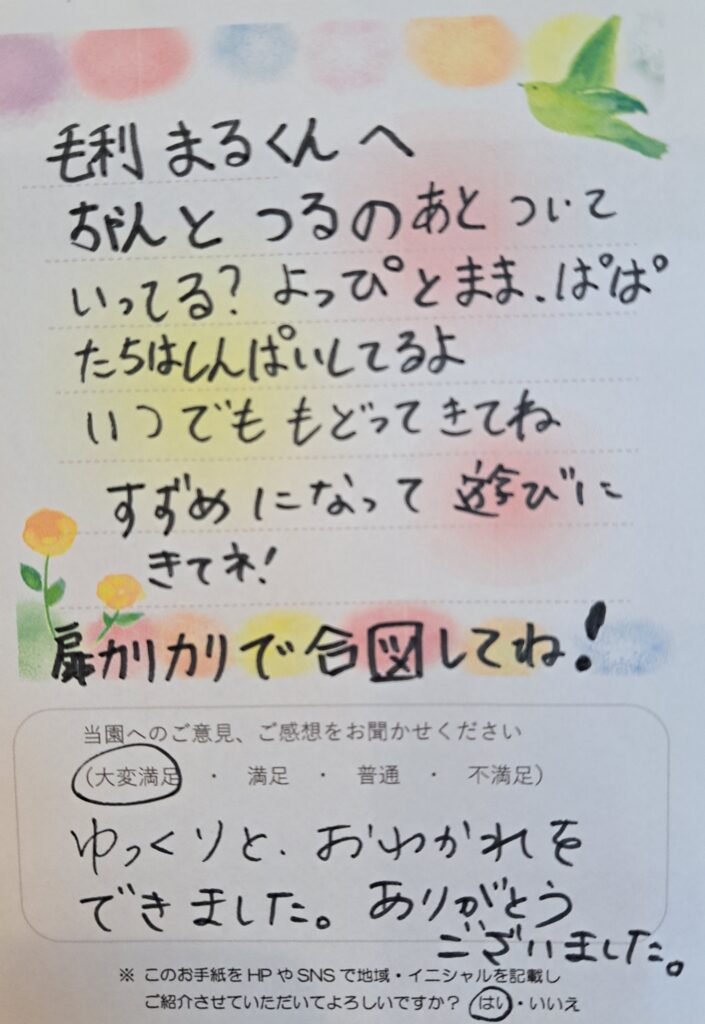 毛利 まるくんへ
ちゃんと つるのあと ついて
いってる？よっぴとまま、ぱぱ
たちはしんぱいしてるよ
いつでも もどってきてね
すずめになって 遊びに
きてネ！
扉カリカリで合図してね！
当園へのご意見、ご感想をお聞かせください
（大変満足 ・ 満足 ・ 普通 ・ 不満足）
ゆっくりと、おわかれを
できました。ありがとう
ございました。
※ このお手紙をHPやSNSで地域・イニシャルを記載し
ご紹介させていただいてよろしいですか？ はい・いいえ